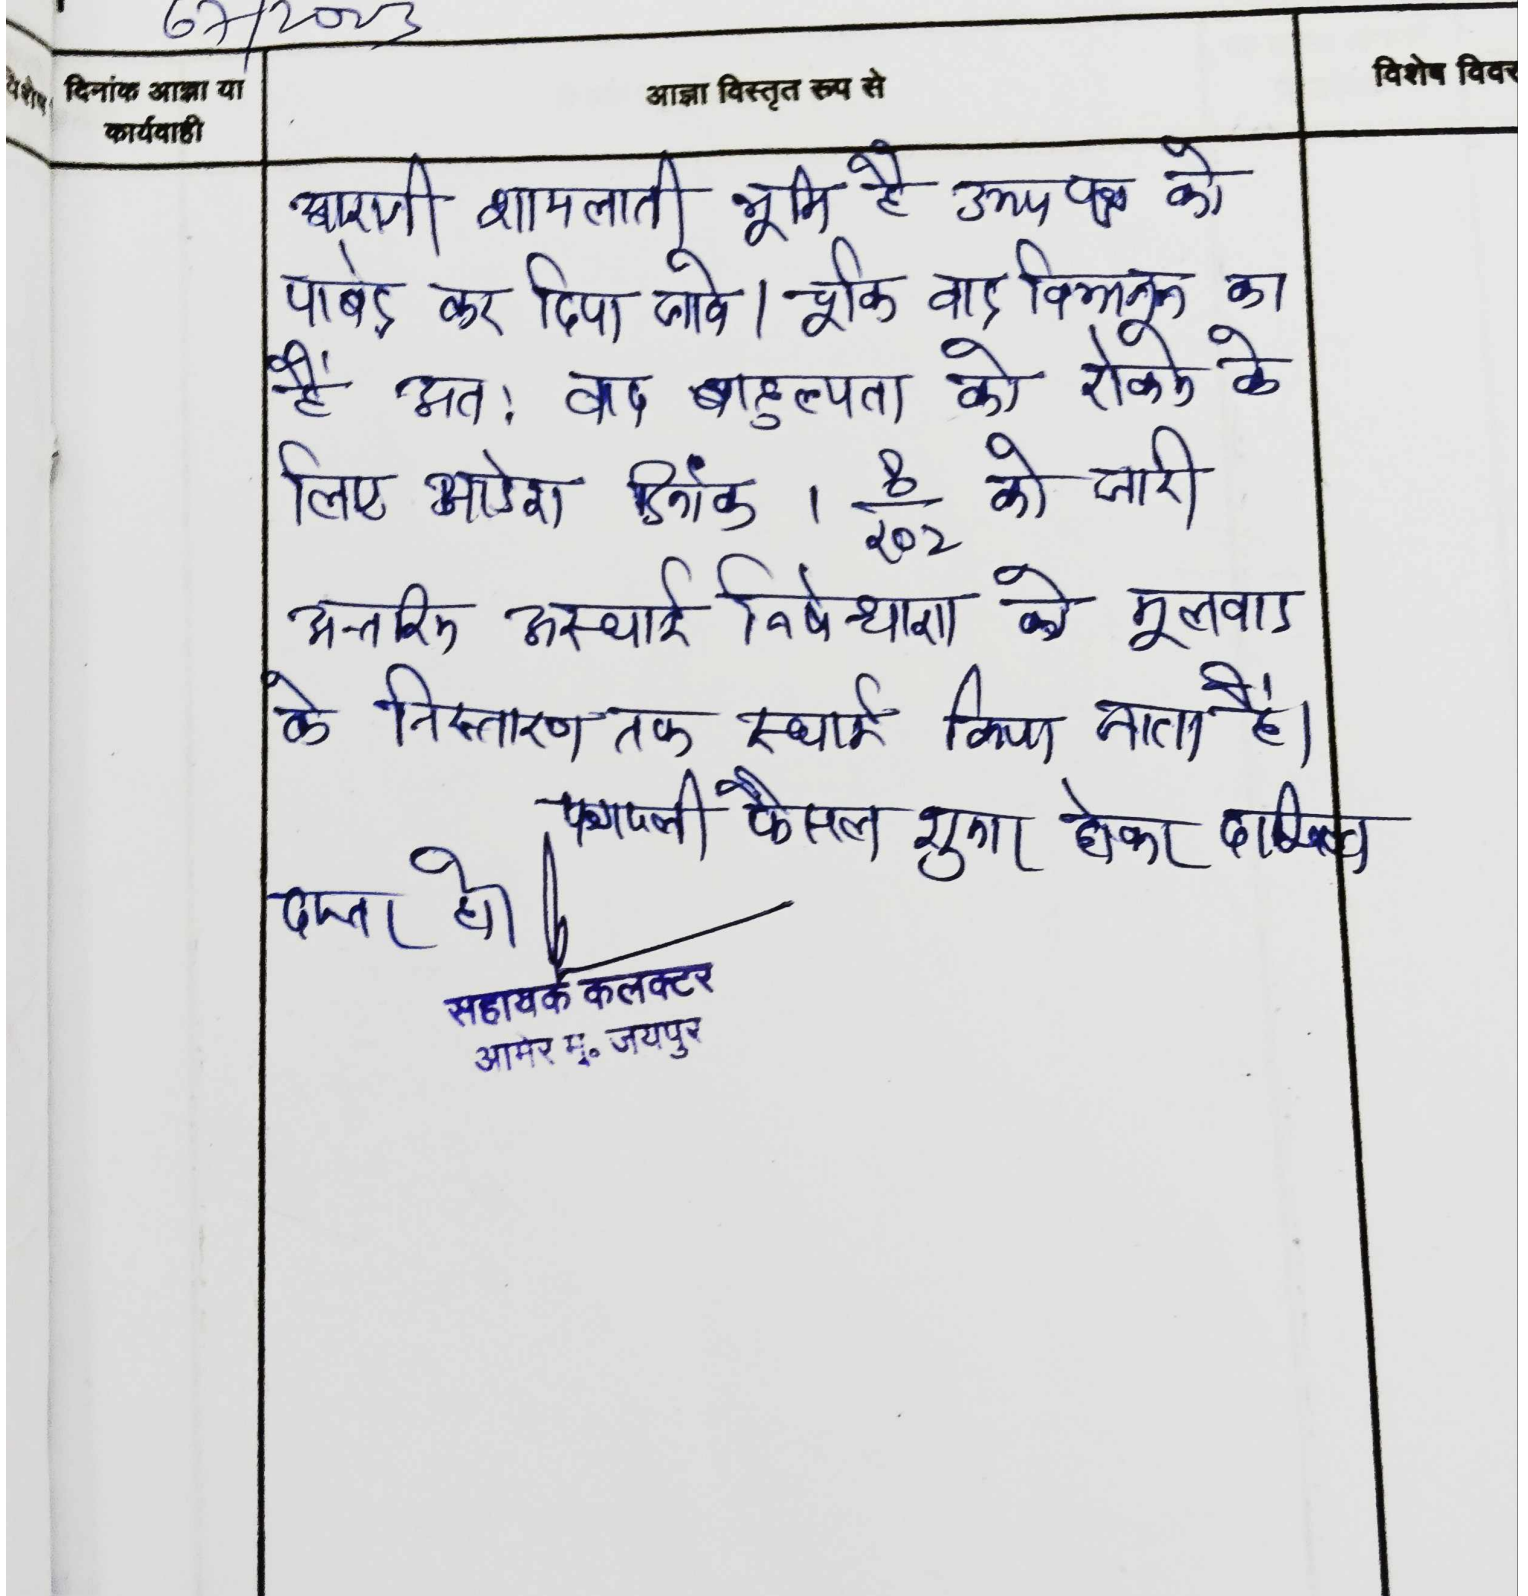 67/2023
दिनांक आज्ञा या
कार्यवाही
आज्ञा विस्तृत रूप से
विशेष विवर
आराजी शामलाती भूमि है उभय पक्ष को
पाबंद कर दिया जावे। चूंकि वाद विभाजन का
है अतः वाद बाहुल्यता को रोकने के
लिए आदेश दिनांक 1 8/202 को जारी
अन्तरिम अस्थाई निषेधाज्ञा को मूलवाद
के निस्तारण तक स्थाई किया जाता है।
पत्रावली फैसल शुमार होकर दाखिल
दफ्तर हो।
सहायक कलक्टर
आमेर मु. जयपुर